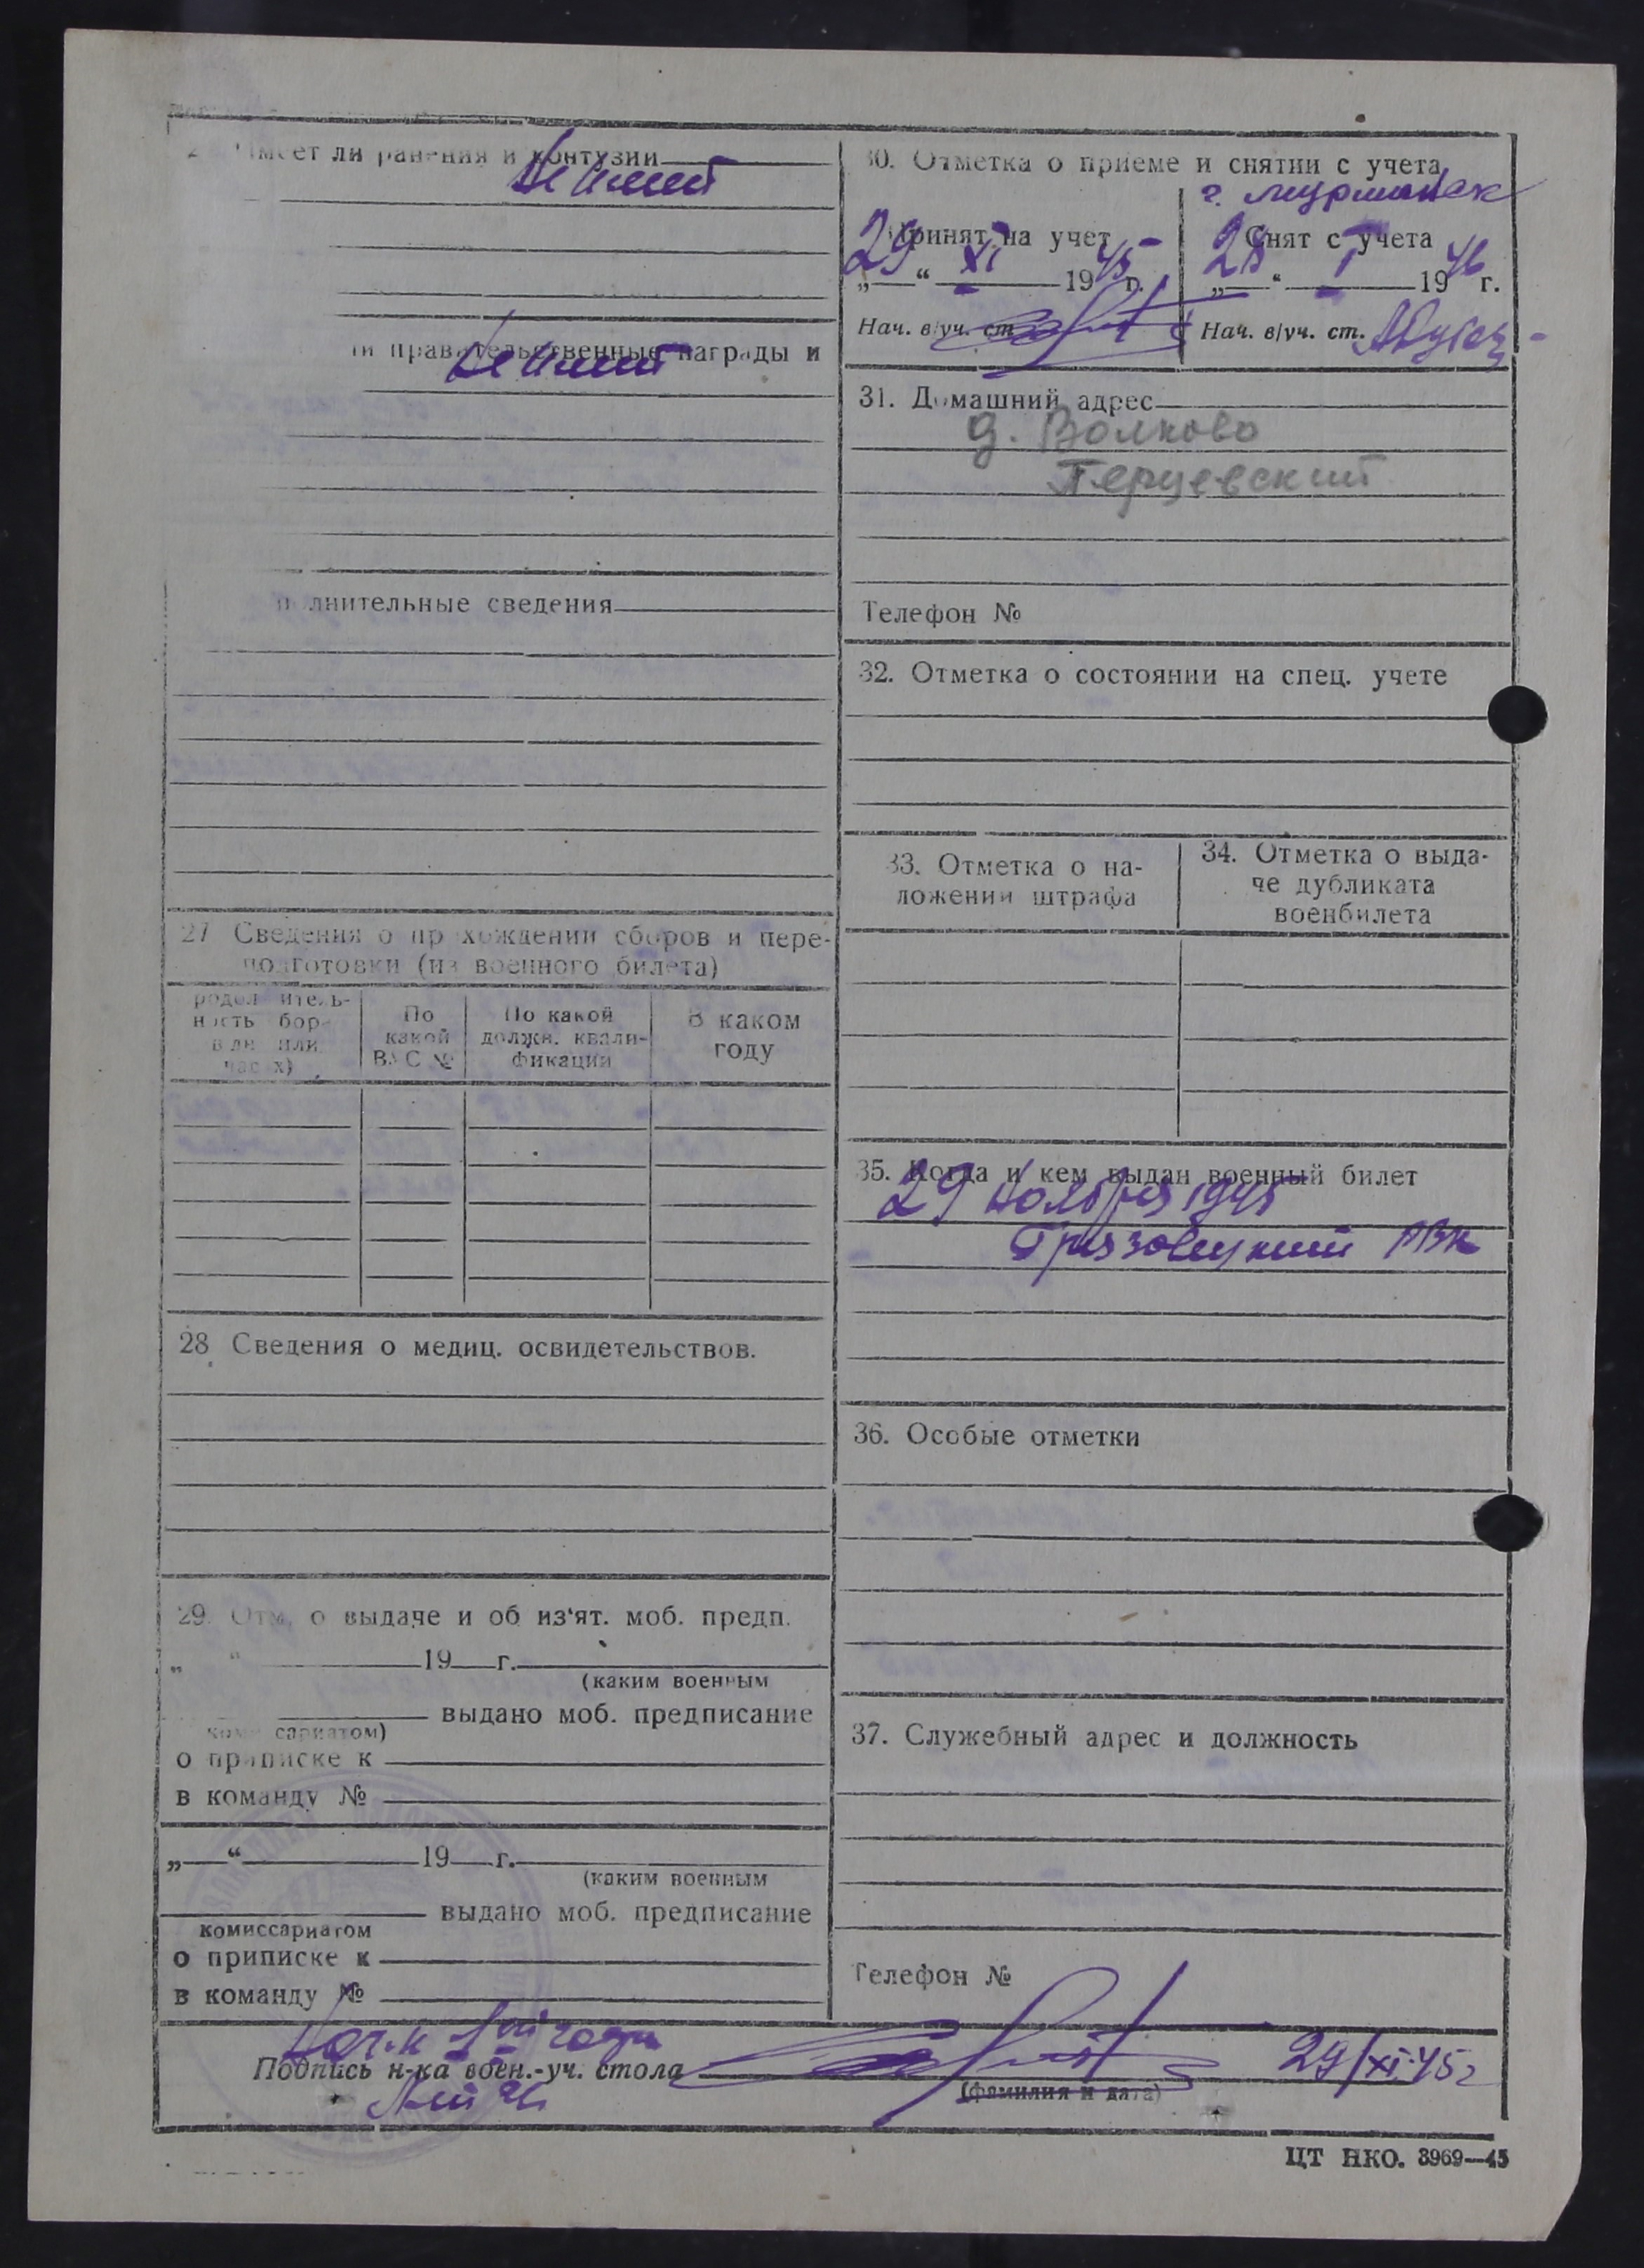 Имеет ли ранения и контузии
Не имеет
правительственные награды и
Не имеет
полнительные сведения
27 Сведения о прохождении сборов и пере-
подготовки (из военного билета)
родолжитель-
ность сбора
в дн или
часах)
По
какой
ВУС №
По какой
должн. квали-
фикации
В каком
году
28 Сведения о медиц. освидетельствов.
29. Отм. о выдаче и об из'ят. моб. предп.
„ “ 19 г.
(каким военным
выдано моб. предписание
комиссариатом)
о приписке к
в команду №
„ “ 19 г.
(каким военным
выдано моб. предписание
комиссариатом
о приписке к
в команду №
30. Отметка о приеме и снятии с учета
г. Мурманск
Принят на учет
„29“ XI 1945 г.
Нач. в/уч. ст.
Снят с учета
„28“ I 1946 г.
Нач. в/уч. ст.
31. Домашний адрес
д. Волково
Перцевский
Телефон №
32. Отметка о состоянии на спец. учете
33. Отметка о на-
ложении штрафа
34. Отметка о выда-
че дубликата
военбилета
35. Когда и кем выдан военный билет
29 ноября 1945
Грязовецкий РВК
36. Особые отметки
37. Служебный адрес и должность
Телефон №
Нач-к 1ой части
Подпись н-ка воен.-уч. стола
29/XI-45г
(фамилия и дата)
ЦТ НКО. 3969—45